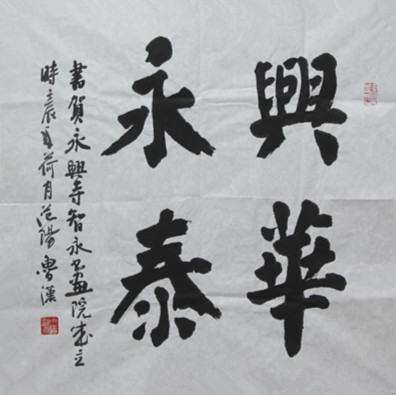 興華
永泰
書賀永興寺智永書畫院成立
時壬辰年荷月范陽魯漢